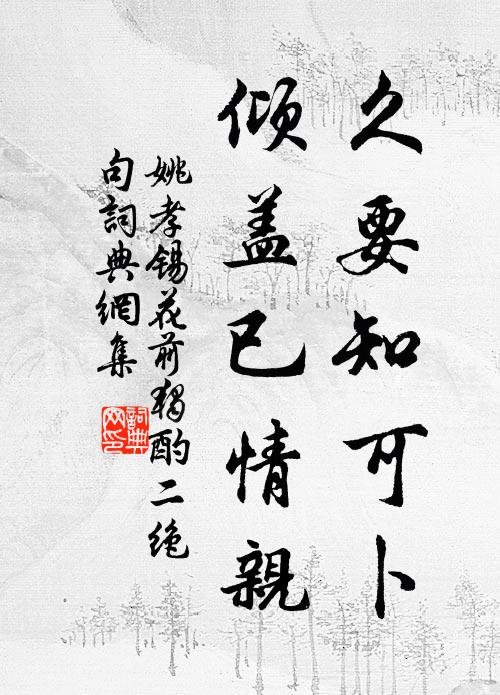 久要知可卜
倾盖已情親
姚孝锡花前獨酌二绝
句詞典網集
詞典网印